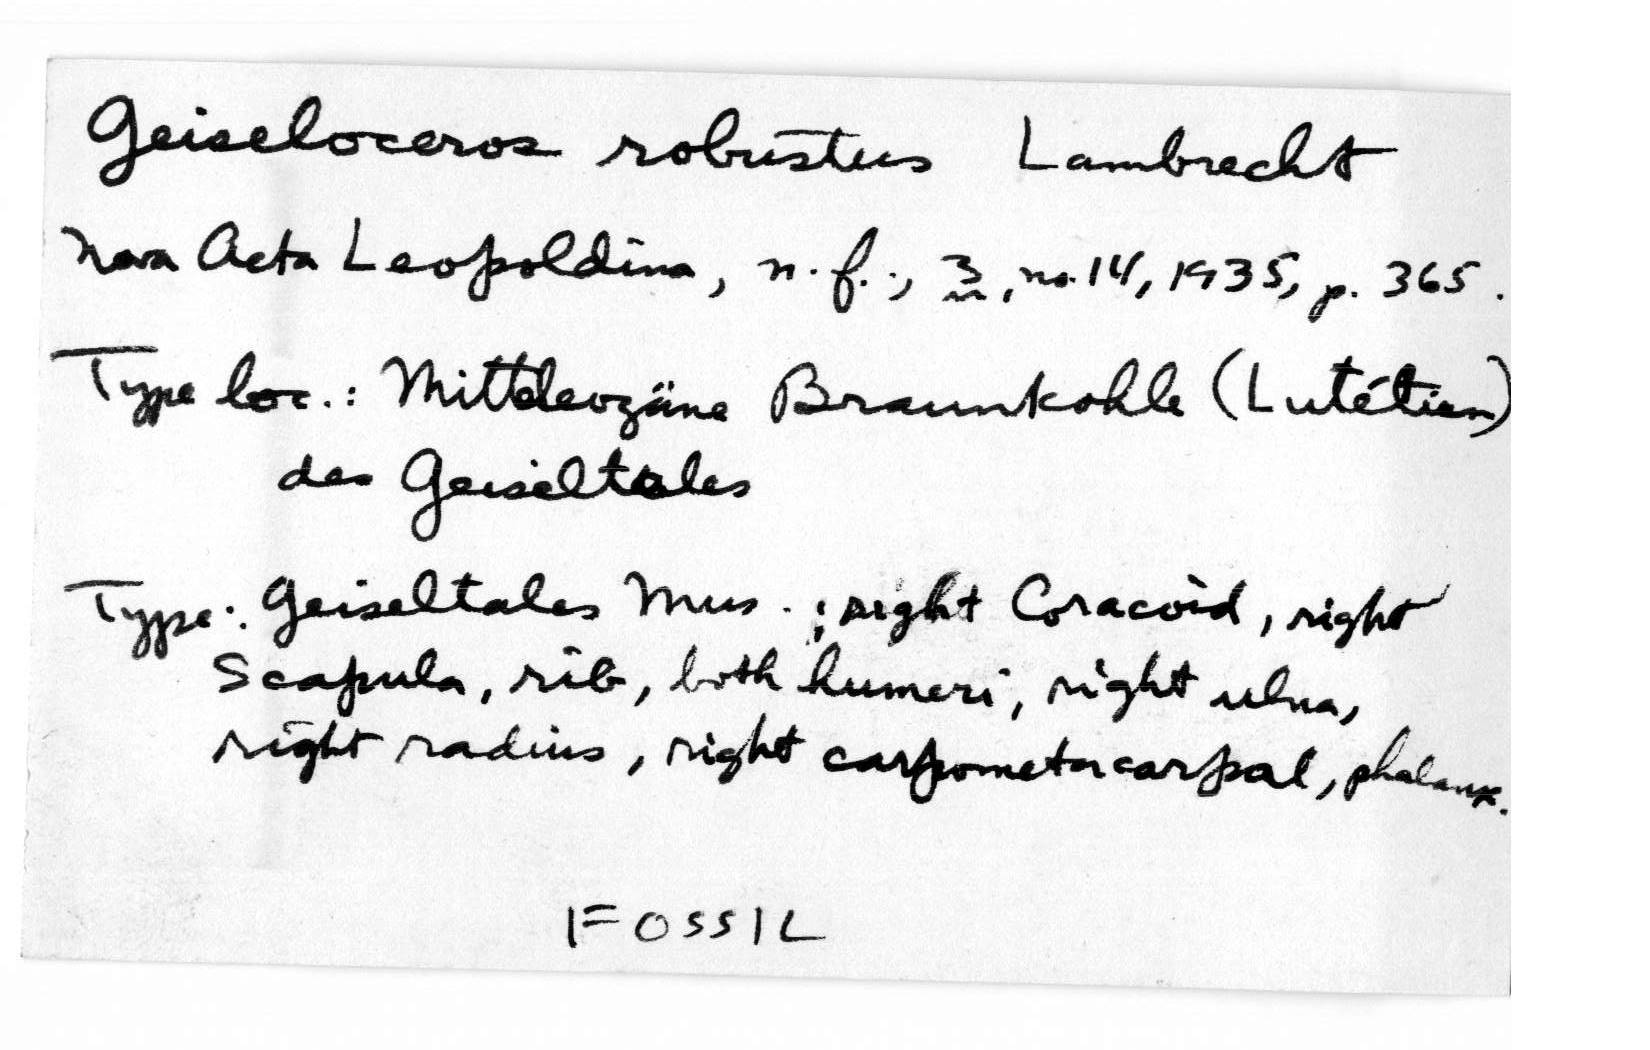 Geiseloceros robustus Lambrecht
Nova Acta Leopoldina, n.f., 3, no. 14, 1935, p. 365.
Type loc.: Mitteleozäne Braunkohle (Lutétien)
des Geiseltales
Type: Geiseltales Mus.; right Coracoid, right
Scapula, rib, both humeri, right ulna,
right radius, right carpometacarpal, phalanx.
FOSSIL